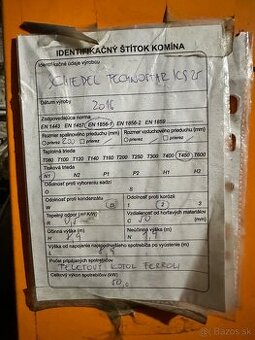 IDENTIFIKAČNÝ ŠTÍTOK KOMÍNA
Identifikačné údaje výrobou
SCHIEDEL TECHNOSTAR ICS 25
Dátum výroby
2016
Zodpovedajúca norma
EN 1443 EN 1457 EN 1856-1 EN 1856-2 EN 1859
Rozmer spalinového prieduchu (mm) Rozmer vzduchového prieduchu (mm)
priemer 200 priemer
Teplotná trieda
T080 T100 T120 T140 T160 T200 T250 T300 T400 T450 T600
Tlaková trieda
N1 N2 P1 P2 H1 H2
Odolnosť proti vyhoreniu sadzí
Odolnosť proti kondenzátu Odolnosť proti korózii
W D 1 2 3
Tepelný odpor (m² K/W) Vzdialenosť od horľavých materiálov (mm)
Účinná výška (m) Neúčinná výška (m)
Výška od napojenia najspodnejšieho spotrebiča po vyústenie (m)
Počet pripojených spotrebičov
PELETOVÝ KOTOL FERROLI
Celkový výkon spotrebičov (kW)
bazos.sk